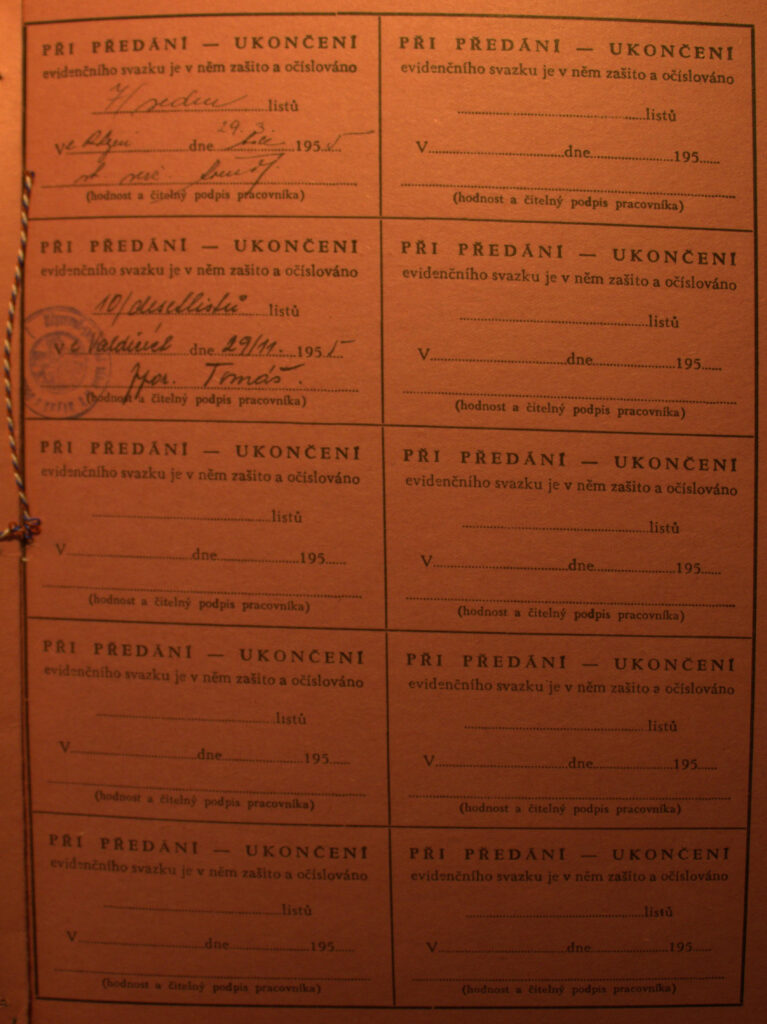 PŘI PŘEDÁNÍ — UKONČENÍ
evidenčního svazku je v něm zašito a očíslováno
7/ sedm listů
Ve Plzni dne 29. 3. 1955
(hodnost a čitelný podpis pracovníka)
PŘI PŘEDÁNÍ — UKONČENÍ
evidenčního svazku je v něm zašito a očíslováno
10/desetlistů listů
V dne 29/11. 1955
Tomáš.
(hodnost a čitelný podpis pracovníka)
PŘI PŘEDÁNÍ — UKONČENÍ
evidenčního svazku je v něm zašito a očíslováno
listů
V dne 195
(hodnost a čitelný podpis pracovníka)
PŘI PŘEDÁNÍ — UKONČENÍ
evidenčního svazku je v něm zašito a očíslováno
listů
V dne 195
(hodnost a čitelný podpis pracovníka)
PŘI PŘEDÁNÍ — UKONČENÍ
evidenčního svazku je v něm zašito a očíslováno
listů
V dne 195
(hodnost a čitelný podpis pracovníka)
PŘI PŘEDÁNÍ — UKONČENÍ
evidenčního svazku je v něm zašito a očíslováno
listů
V dne 195
(hodnost a čitelný podpis pracovníka)
PŘI PŘEDÁNÍ — UKONČENÍ
evidenčního svazku je v něm zašito a očíslováno
listů
V dne 195
(hodnost a čitelný podpis pracovníka)
PŘI PŘEDÁNÍ — UKONČENÍ
evidenčního svazku je v něm zašito a očíslováno
listů
V dne 195
(hodnost a čitelný podpis pracovníka)
PŘI PŘEDÁNÍ — UKONČENÍ
evidenčního svazku je v něm zašito a očíslováno
listů
V dne 195
(hodnost a čitelný podpis pracovníka)
PŘI PŘEDÁNÍ — UKONČENÍ
evidenčního svazku je v něm zašito a očíslováno
listů
V dne 195
(hodnost a čitelný podpis pracovníka)